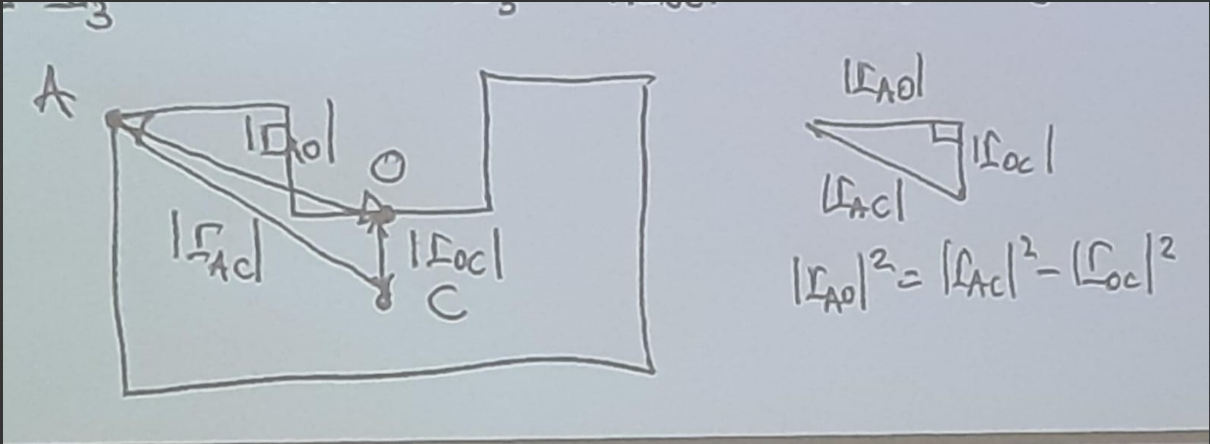 3
3
A
|r_AO|
O
|r_AC|
|r_OC|
C
|r_AO|
|r_OC|
|r_AC|
|r_AO|² = |r_AC|² - |r_OC|²